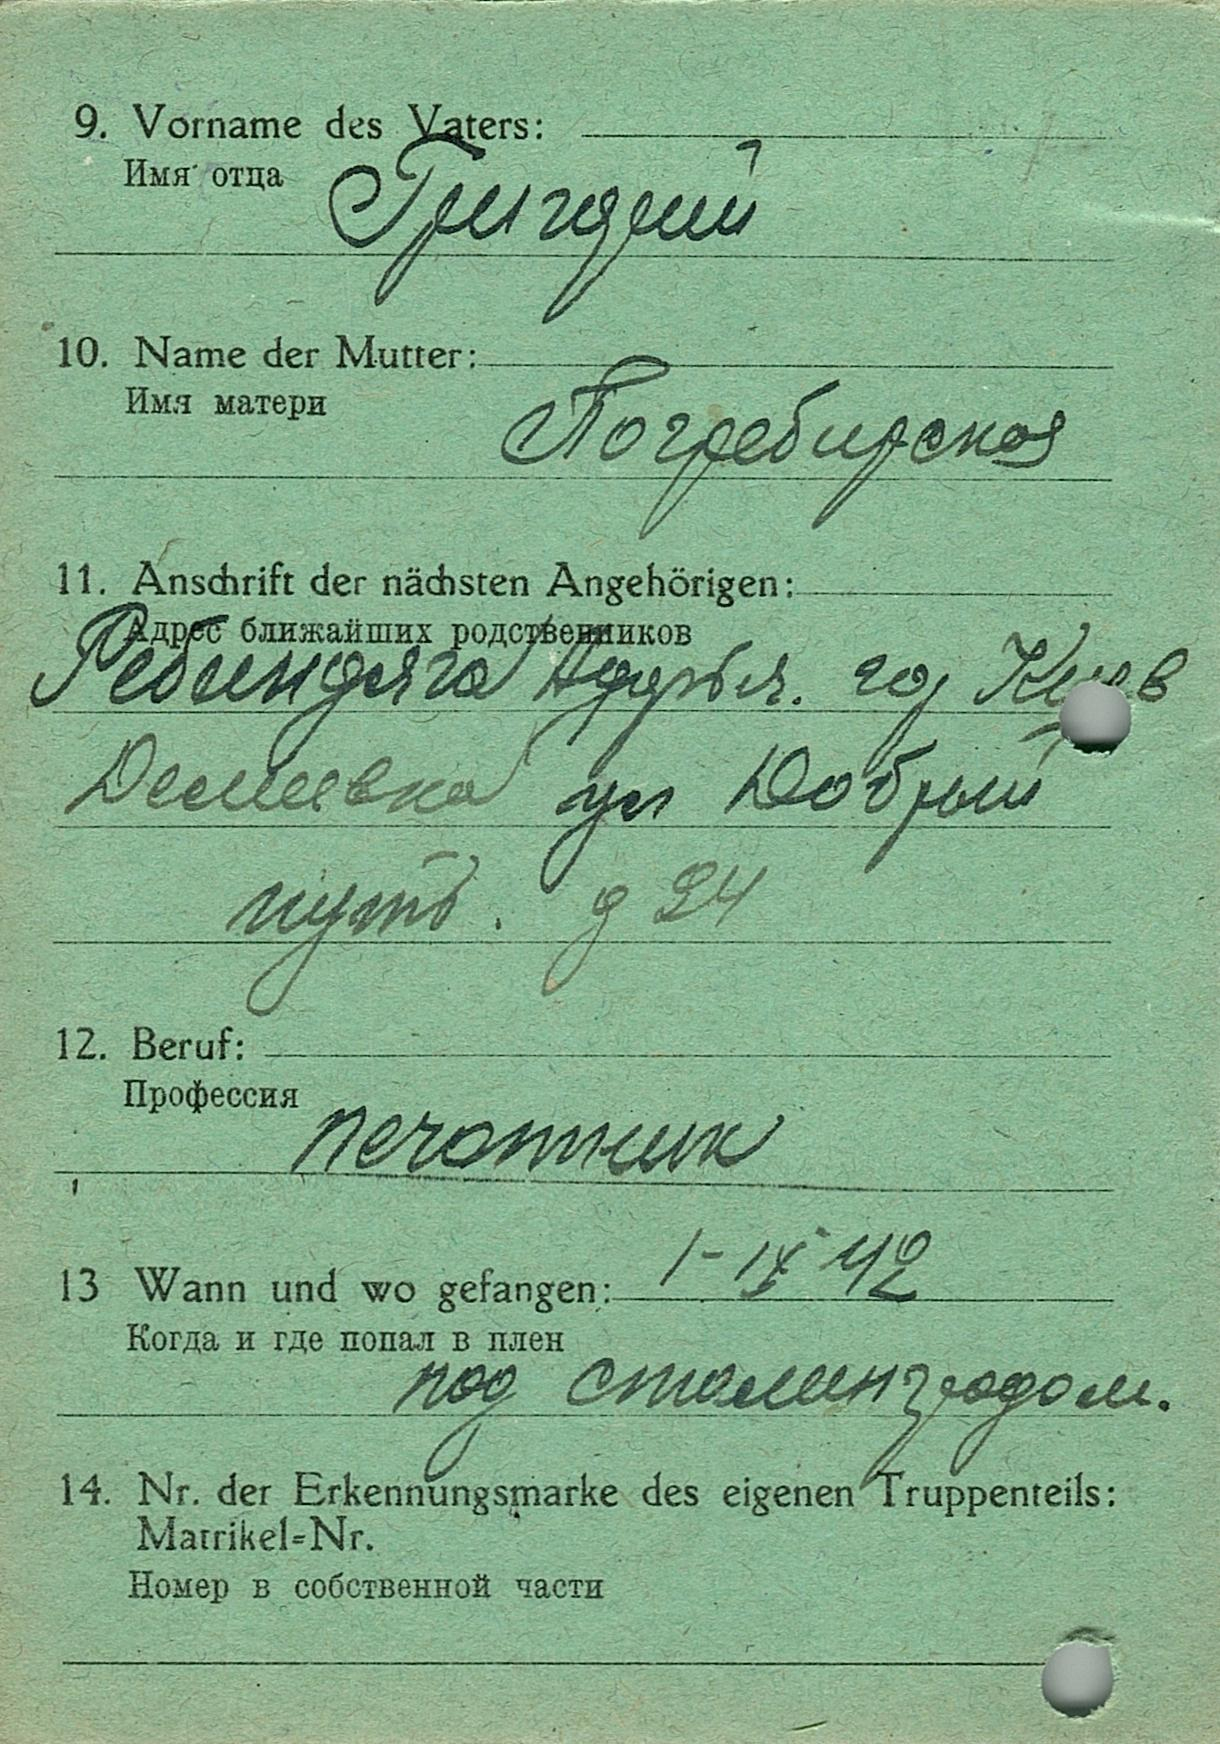 9. Vorname des Vaters:
Имя отца
Григорий
10. Name der Mutter:
Имя матери
Погребирская
11. Anschrift der nächsten Angehörigen:
Адрес ближайших родственников
Ребиндяга гор Киев
Демеевка ул Добрый
путь. д 24
12. Beruf:
Профессия
печатник
13 Wann und wo gefangen: 1-IX 42
Когда и где попал в плен
под сталинградом.
14. Nr. der Erkennungsmarke des eigenen Truppenteils:
Matrikel=Nr.
Номер в собственной части